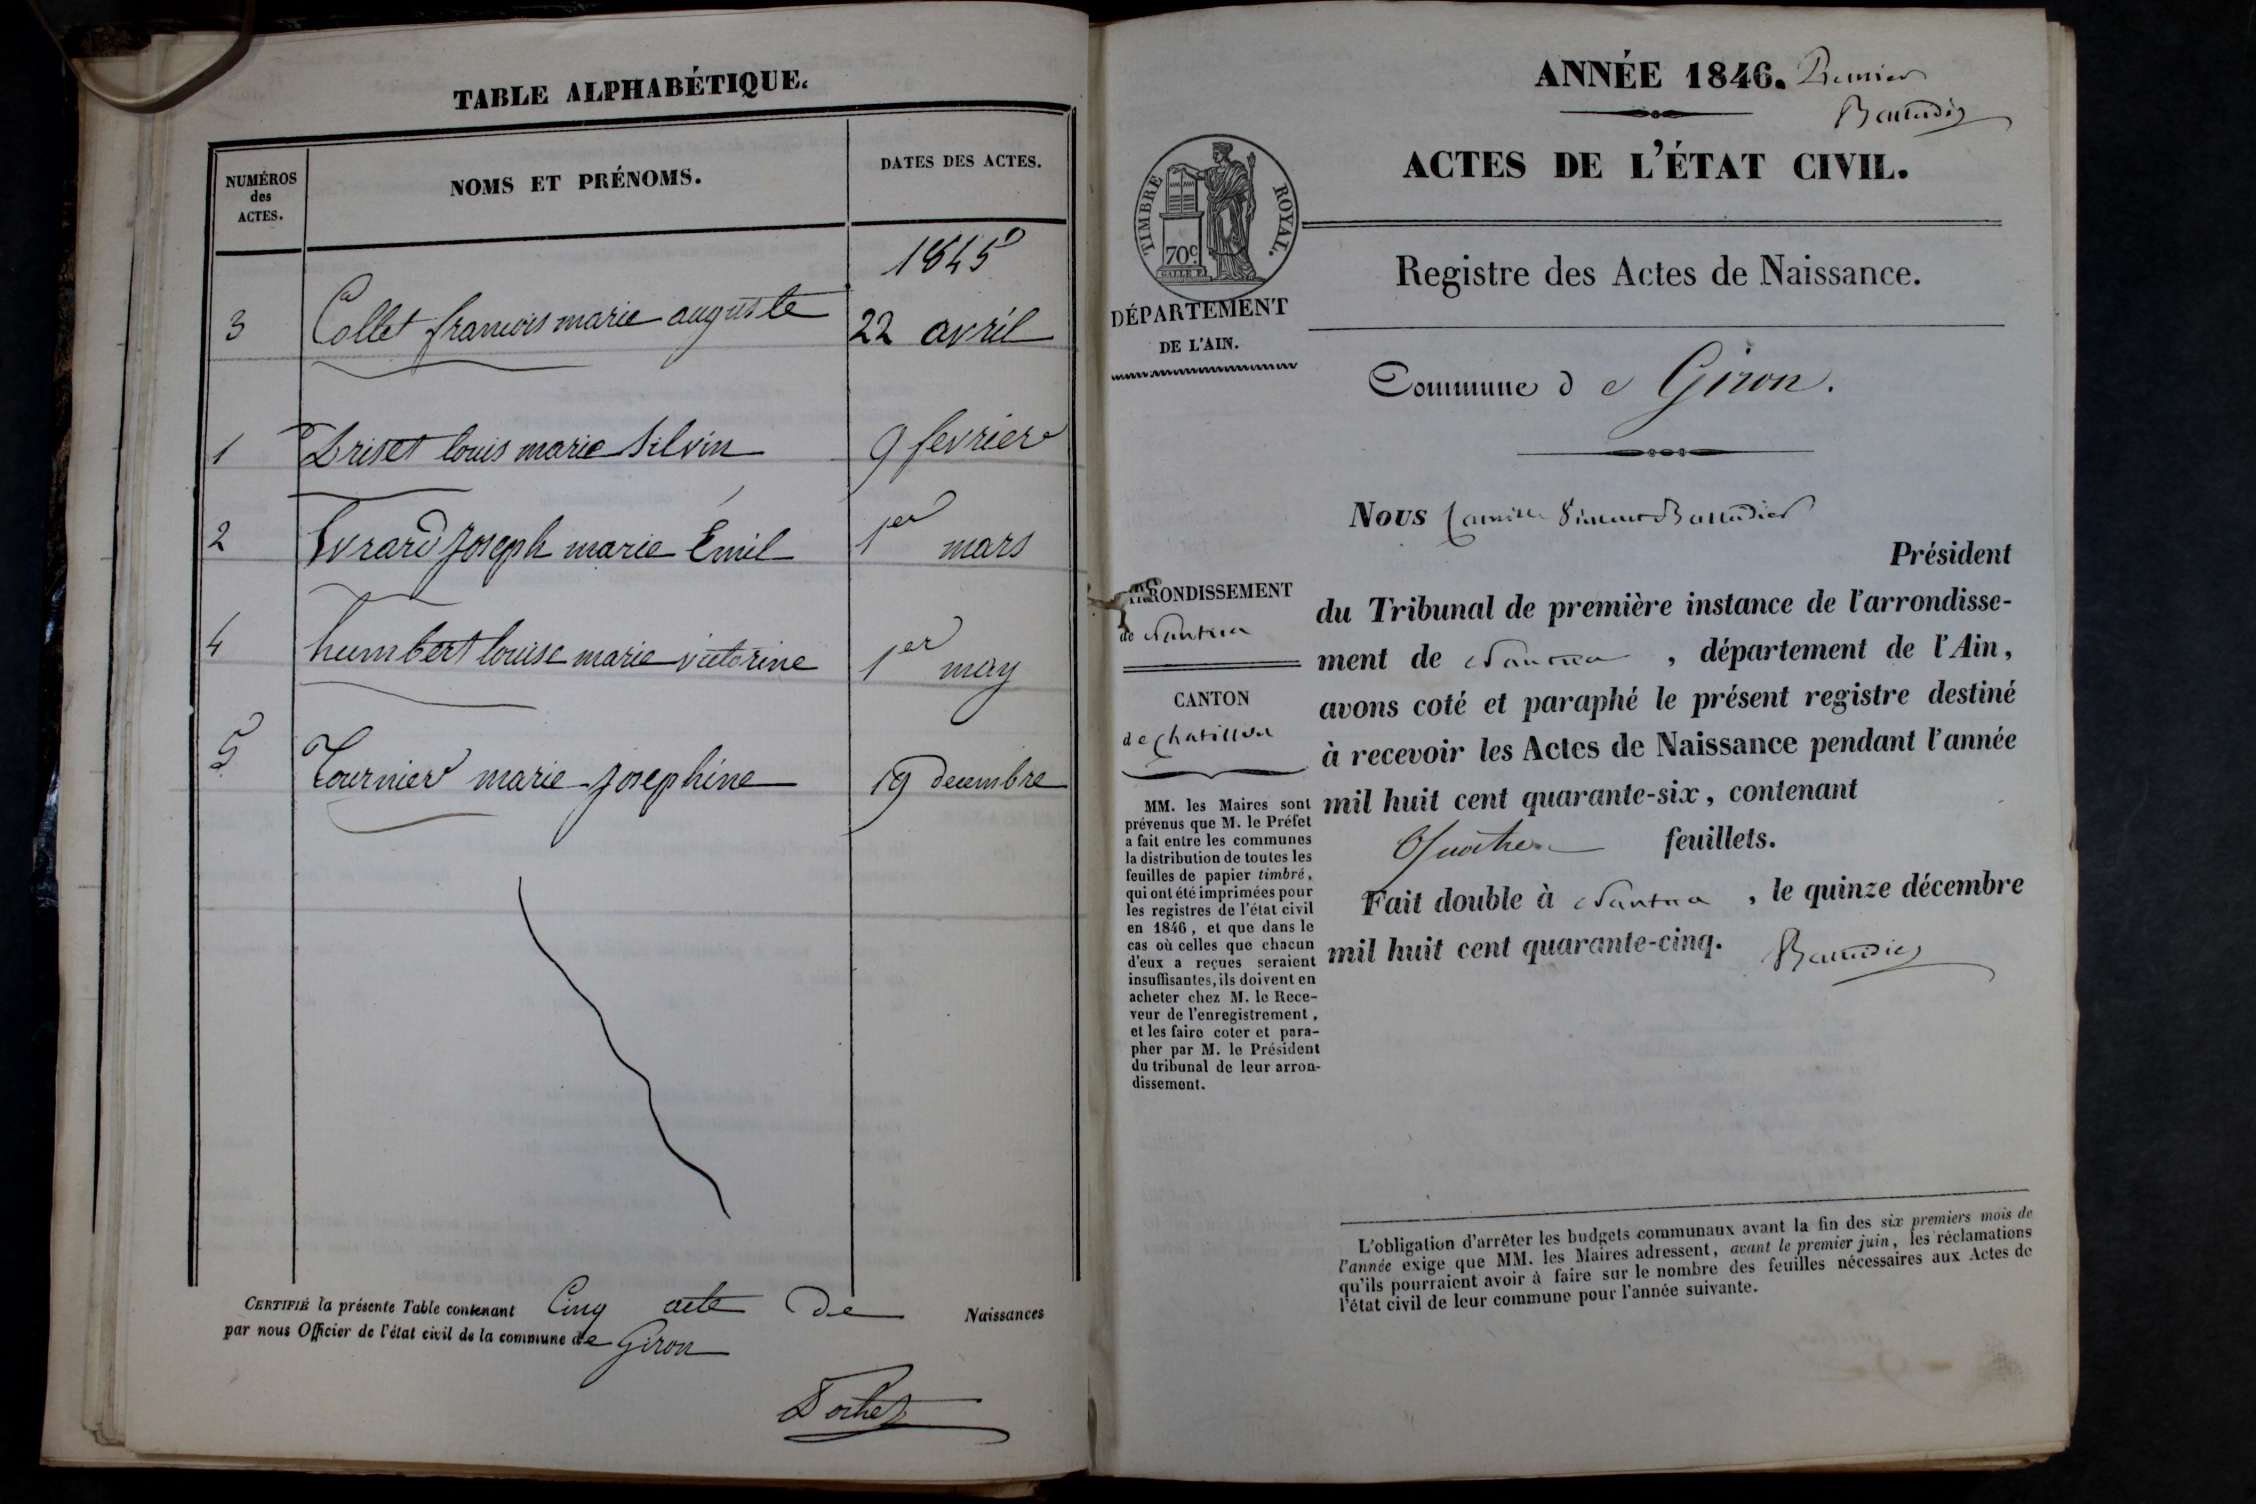 TABLE ALPHABÉTIQUE.
NUMÉROS
des
ACTES.
NOMS ET PRÉNOMS.
DATES DES ACTES.
1845
3 Collet francois marie auguste 22 avril
1 Driset louis marie Silvin 9 fevrier
2 Evrard Joseph marie Émil 1er mars
4 humbert louise marie victorine 1er may
5 Tournier marie Josephine 19 decembre
CERTIFIÉ la présente Table contenant Cinq acte De Naissances
par nous Officier de l'état civil de la commune de Giron
ANNÉE 1846. Premier
ACTES DE L'ÉTAT CIVIL.
TIMBRE ROYAL.
70c
Registre des Actes de Naissance.
DÉPARTEMENT
DE L'AIN.
Commune de Giron.
Nous Camille
Président
du Tribunal de première instance de l'arrondisse-
ment de Nantua, département de l'Ain,
avons coté et paraphé le présent registre destiné
à recevoir les Actes de Naissance pendant l'année
mil huit cent quarante-six, contenant
Quatre feuillets.
Fait double à Nantua, le quinze décembre
mil huit cent quarante-cinq.
ARRONDISSEMENT
de Nantua
CANTON
de chatillon
MM. les Maires sont
prévenus que M. le Préfet
a fait entre les communes
la distribution de toutes les
feuilles de papier timbré,
qui ont été imprimées pour
les registres de l'état civil
en 1846, et que dans le
cas où celles que chacun
d'eux a reçues seraient
insuffisantes, ils doivent en
acheter chez M. le Rece-
veur de l'enregistrement,
et les faire coter et para-
pher par M. le Président
du tribunal de leur arron-
dissement.
L'obligation d'arrêter les budgets communaux avant la fin des six premiers mois de
l'année exige que MM. les Maires adressent, avant le premier juin, les réclamations
qu'ils pourraient avoir à faire sur le nombre des feuilles nécessaires aux Actes de
l'état civil de leur commune pour l'année suivante.